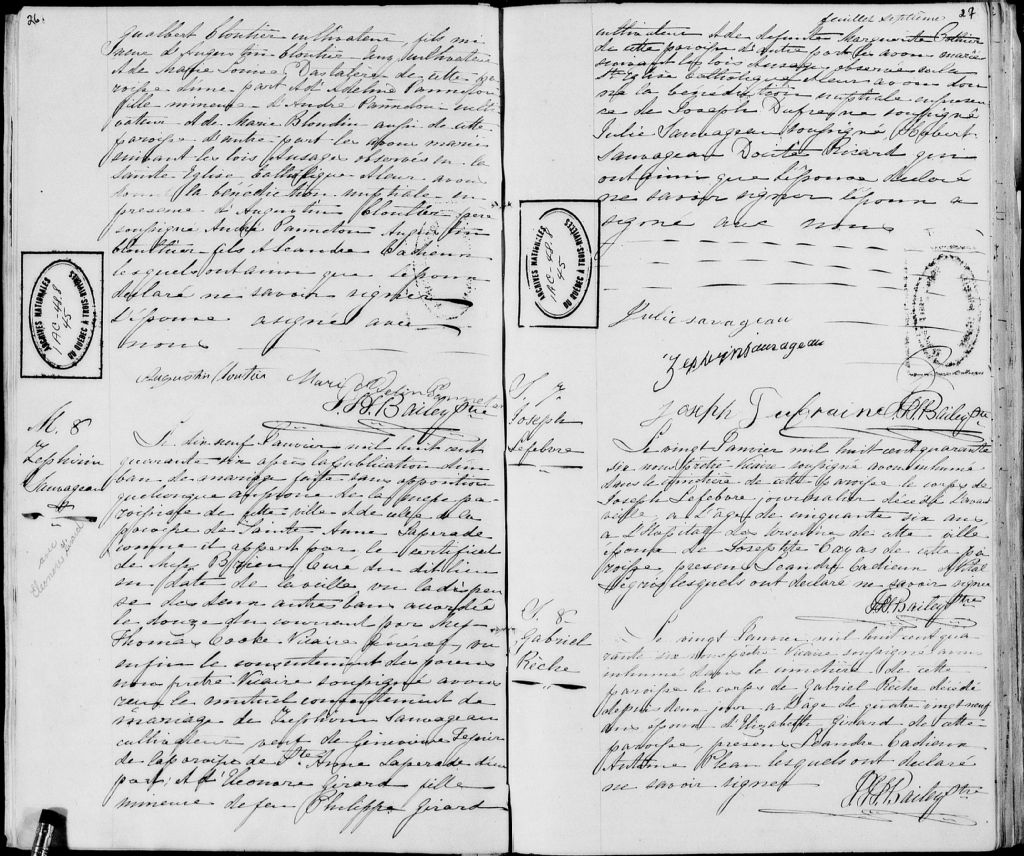 26.
Gualbert Cloutier cultivateur, fils mi-
neur d'Augustin Cloutier cultivateur
& de Marie Louise Daslatere de cette pa-
roisse d'une part & d'Adeline Panneton
fille mineure d'André Panneton culti-
vateur & de Marie Blondin aussi de cette
paroisse d'autre part les avons mariés
suivant les lois & usages observés en la
Sainte Eglise Catholique & leur avons
donné la bénédiction nuptiale en
presence d'Augustin Cloutier père
soussigné André Panneton Augustin
Cloutier fils & Leandre Cadieux
lesquels ont ainsi que l'époux
declaré ne savoir signer
L'épouse a signé avec
nous
Augustin Cloutier Marie Adelin Panneton
J. H. Bailey Ptre
M. 8
Zephirin
Sauvageau
&
avec
Eleonore Girard
Le dix neuf Janvier mil huit cent
quarante six après la publication d'un
ban de mariage faite sans opposition
quelconque au prone de la messe pa-
roissiale de cette ville & de celle de la
paroisse de Sainte Anne Laperade
comme il appert par le certificat
de Messr Brien Curé du dit lieu
en date de la veille vu la dispen-
se des deux autres bans accordée
le douze du courrent par Messr
Thomas Cooke Vicaire Général, vu
enfin le consentement des parens
nous prêtre Vicaire soussigné avons
reçu le mutuel consentement de
mariage de Zephirin Sauvageau
cultivateur veuf de Genevieve Tessier
de la paroisse de Ste Anne Laperade d'une
part, & d'Eleonore Girard fille
mineure de feu Philippe Girard
ARCHIVES NATIONALES
1 AC-448
45
DU QUÉBEC À TROIS-RIVIÈRES
feuillet septième
27
cultivateur & de defunte Marguerite
de cette paroisse d'autre part les avons mariés
suivant les lois & usages observés en la
Ste Eglise Catholique & leur avons don-
né la bénédiction nuptiale en presen-
ce de Joseph Dufresne soussigné
Julie Sauvageau soussigné
Sauvageau Ricard qui
ont ainsi que l'épouse declaré
ne savoir signer l'époux a
signé avec nous
ARCHIVES NATIONALES
1 AC-48-8
45
DU QUÉBEC À TROIS-RIVIÈRES
Julie savageau
Zephirin Sauvageau
Joseph Dufraine J. H. Bailey Ptre
S. 7
Joseph
Lefebvre
Le vingt Janvier mil huit cent quarante
six nous prêtre Vicaire soussigné avons inhumé
dans le cimetière de cette paroisse le corps de
Joseph Lefebvre journalier décédé l'avant
veille, a l'age de cinquante six ans
a l'Hospital des Ursulines de cette ville
époux de Josephte Cayas de cette pa-
roisse presens Leandre Cadieux & Vital
lesquels ont declaré ne savoir signer
J. H. Bailey Ptre
S. 8
Gabriel
Riche
Le vingt Janvier mil huit cent qua-
rante six nous prêtre Vicaire soussigné avons
inhumé dans le cimetière de cette
paroisse le corps de Gabriel Riche décédé
depuis deux jours a l'age de quatre vingt neuf
ans époux d'Elizabeth Girard de cette
paroisse presens Leandre Cadieux
Antoine lesquels ont declaré
ne savoir signer
J. H. Bailey Ptre